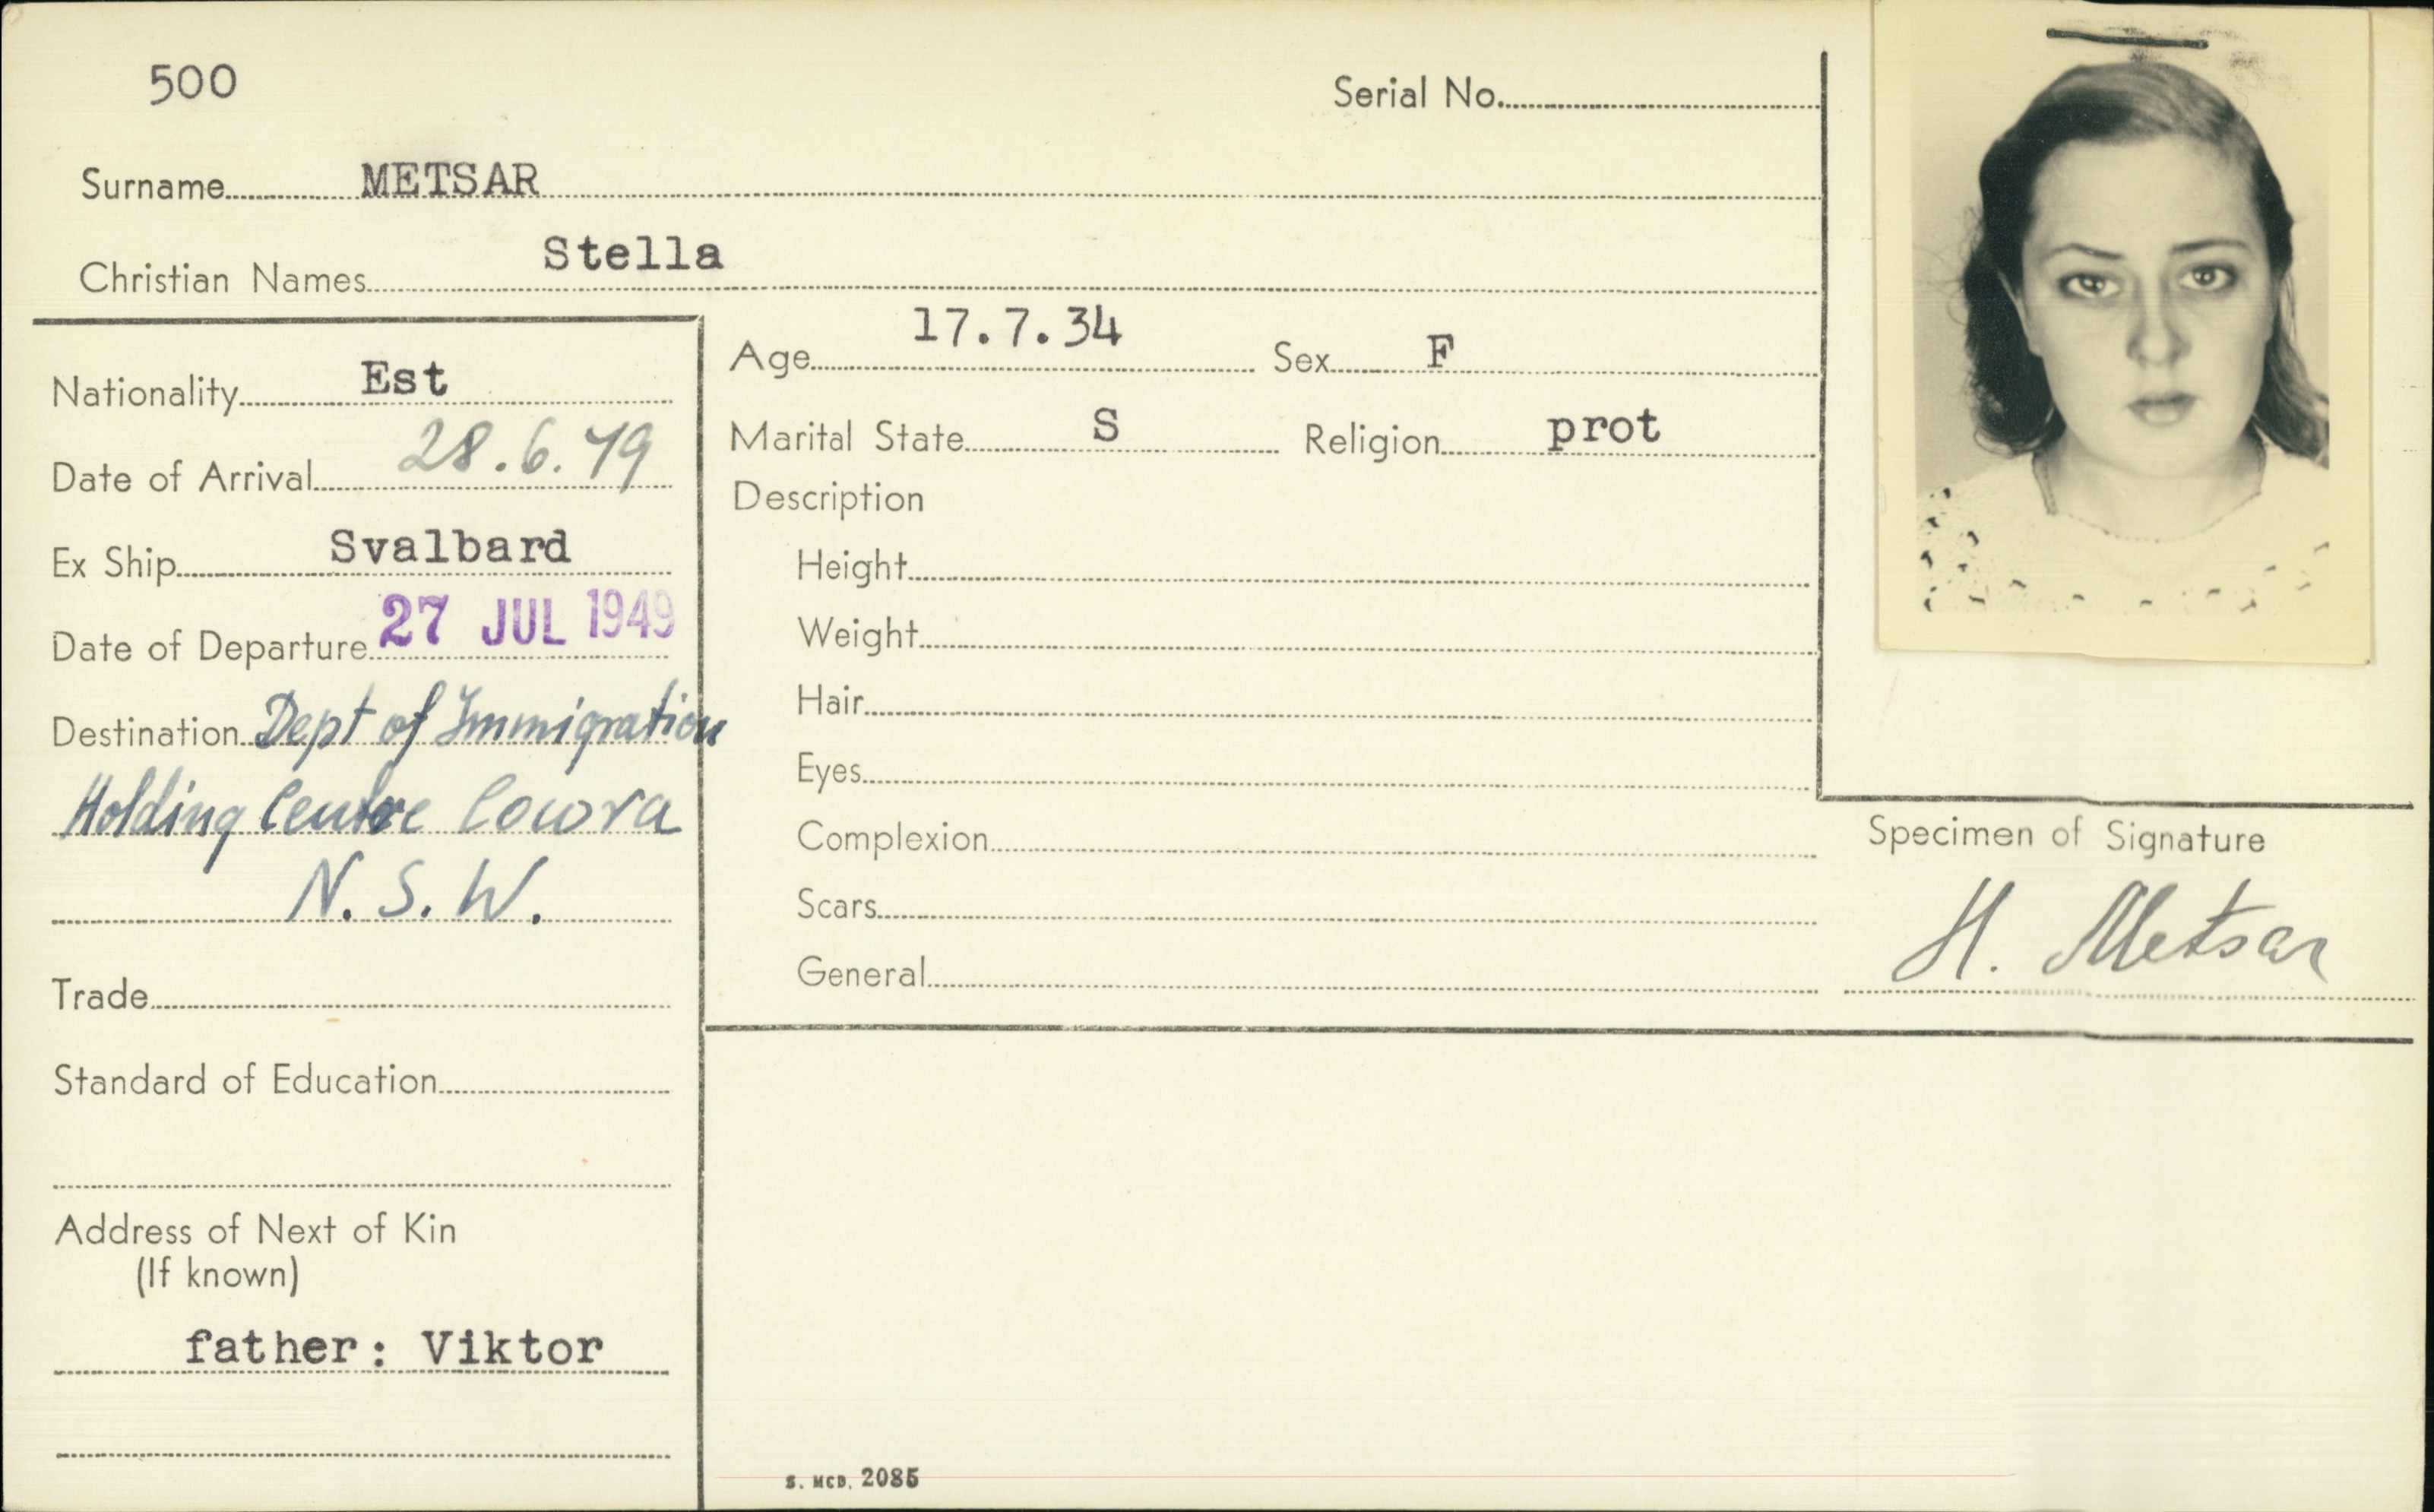 500
Serial No.
Surname METSAR
Christian Names Stella
Nationality Est
Date of Arrival 28.6.49
Ex Ship Svalbard
Date of Departure 27 JUL 1949
Destination Dept of Immigration
Holding Centre Cowra
N. S. W.
Trade
Standard of Education
Address of Next of Kin
(If known)
father: Viktor
Age 17.7.34 Sex F
Marital State S Religion prot
Description
Height
Weight
Hair
Eyes
Complexion
Scars
General
Specimen of Signature
H. Metsar
S. MCD. 2085